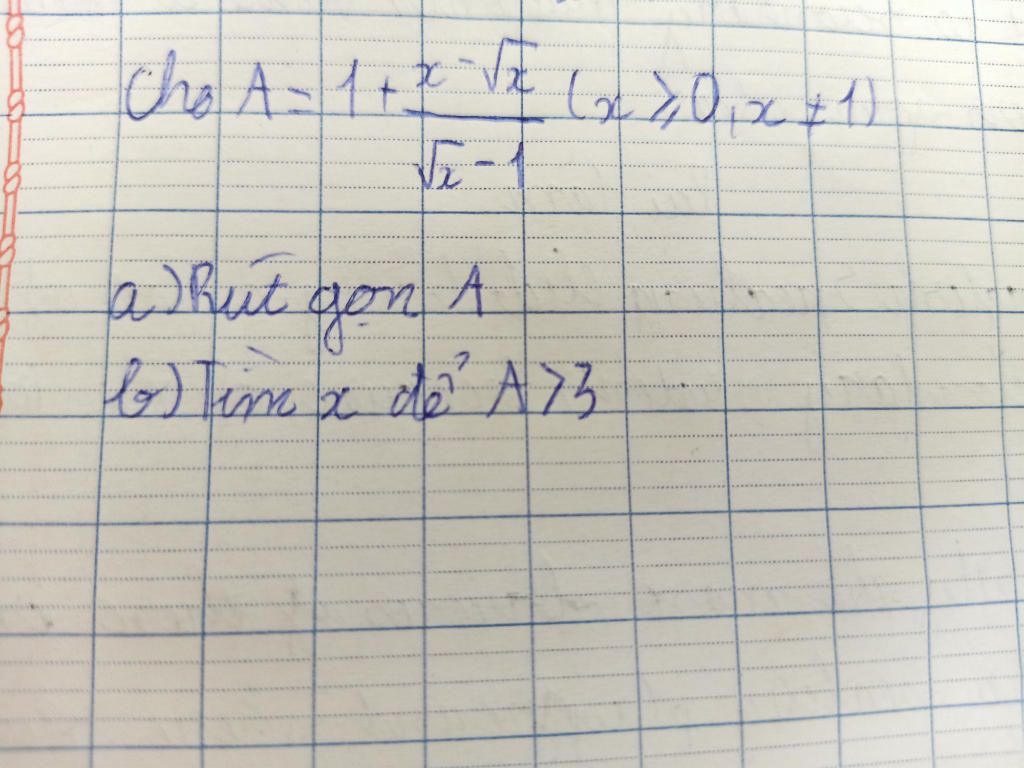 Cho A = 1 + \frac{x - \sqrt{x}}{\sqrt{x} - 1} (x ⩾ 0, x ≠ 1)
a) Rút gọn A
b) Tìm x để A > 3